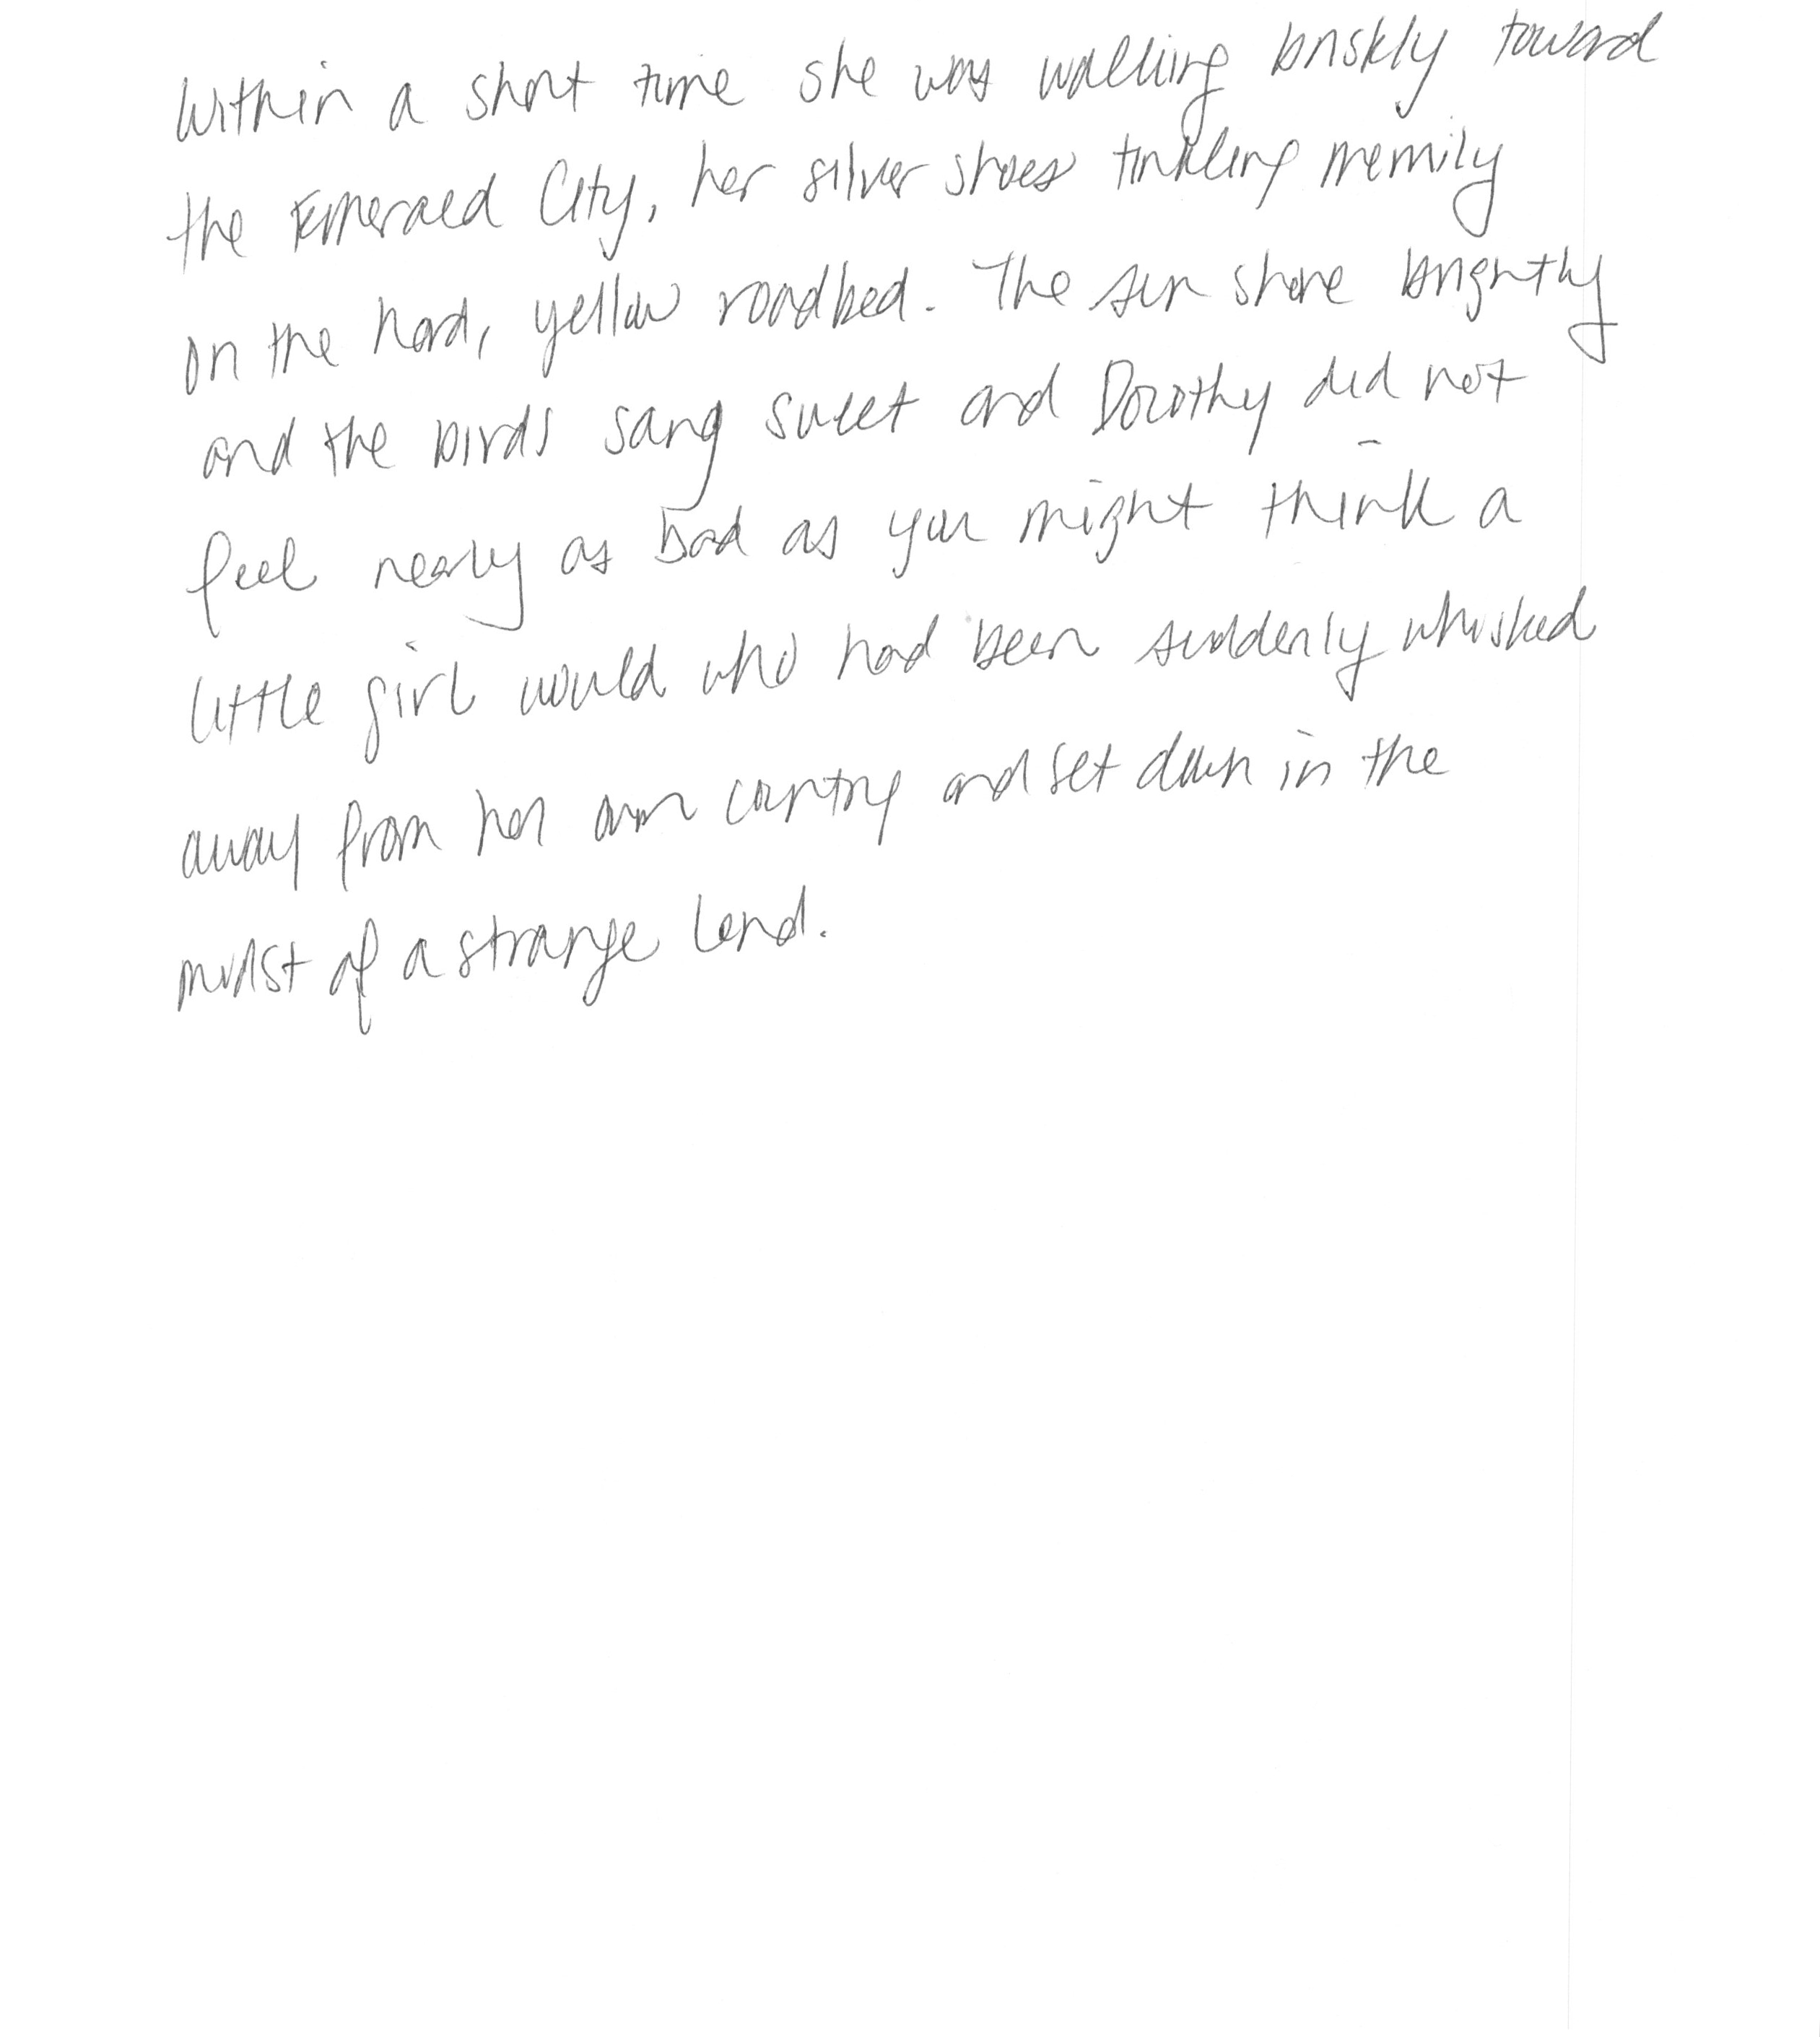 Within a short time she was walking briskly toward
the Emerald City, her silver shoes tinkling merrily
on the hard, yellow roadbed. The sun shone brightly
and the birds sang sweet and Dorothy did not
feel nearly as bad as you might think a
little girl would who had been suddenly whisked
away from her own country and set down in the
midst of a strange land.